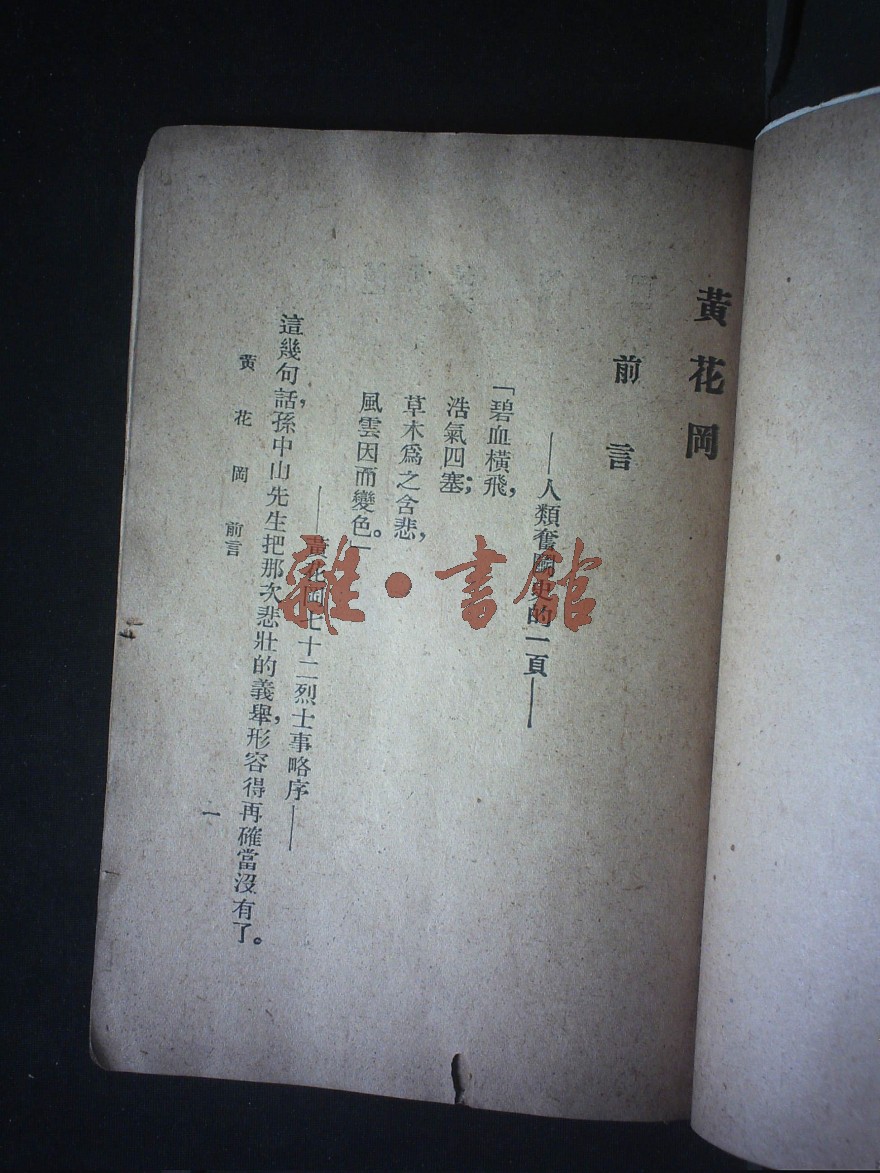 黃花岡
前言
——人類奮鬭史的一頁——
「碧血橫飛,
浩氣四塞;
草木爲之含悲,
風雲因而變色。」
——黃花岡七十二烈士事略序——
這幾句話,孫中山先生把那次悲壯的義舉,形容得再確當沒有了。
黃花岡 前言
一
雜·書館